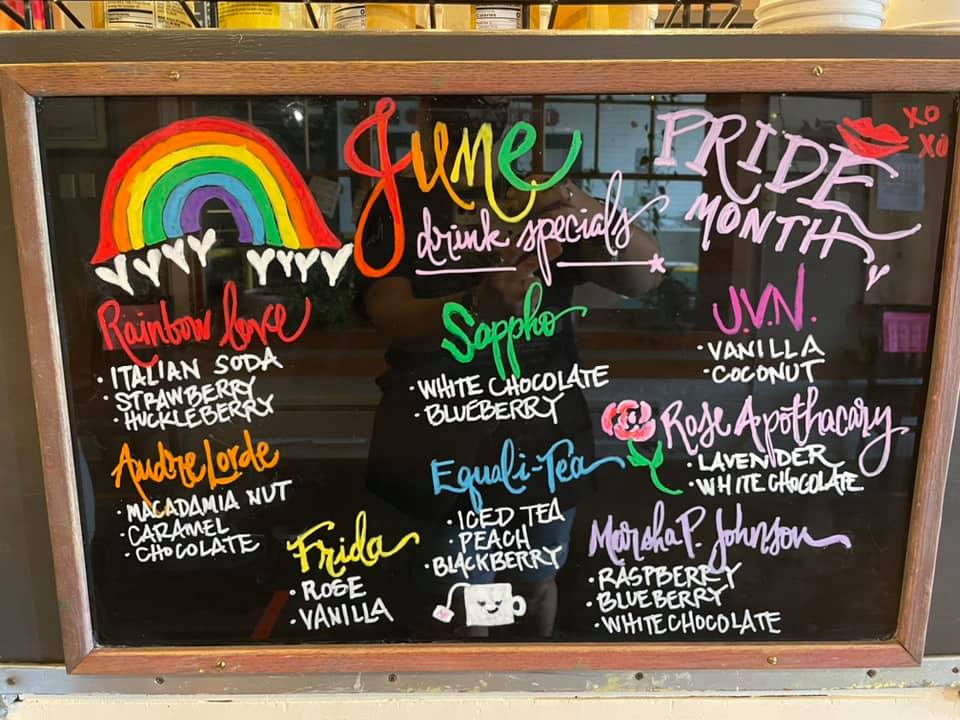 June
drink specials
PRIDE
MONTH
XO
XO
Rainbow Love
• ITALIAN SODA
• STRAWBERRY
• HUCKLEBERRY
Audre Lorde
• MACADAMIA NUT
• CARAMEL
• CHOCOLATE
Frida
• ROSE
• VANILLA
Sappho
• WHITE CHOCOLATE
• BLUEBERRY
Equali-Tea
• ICED TEA
• PEACH
• BLACKBERRY
J.V.N.
• VANILLA
• COCONUT
Rose Apothacary
• LAVENDER
• WHITE CHOCOLATE
Marsha P. Johnson
• RASPBERRY
• BLUEBERRY
• WHITE CHOCOLATE